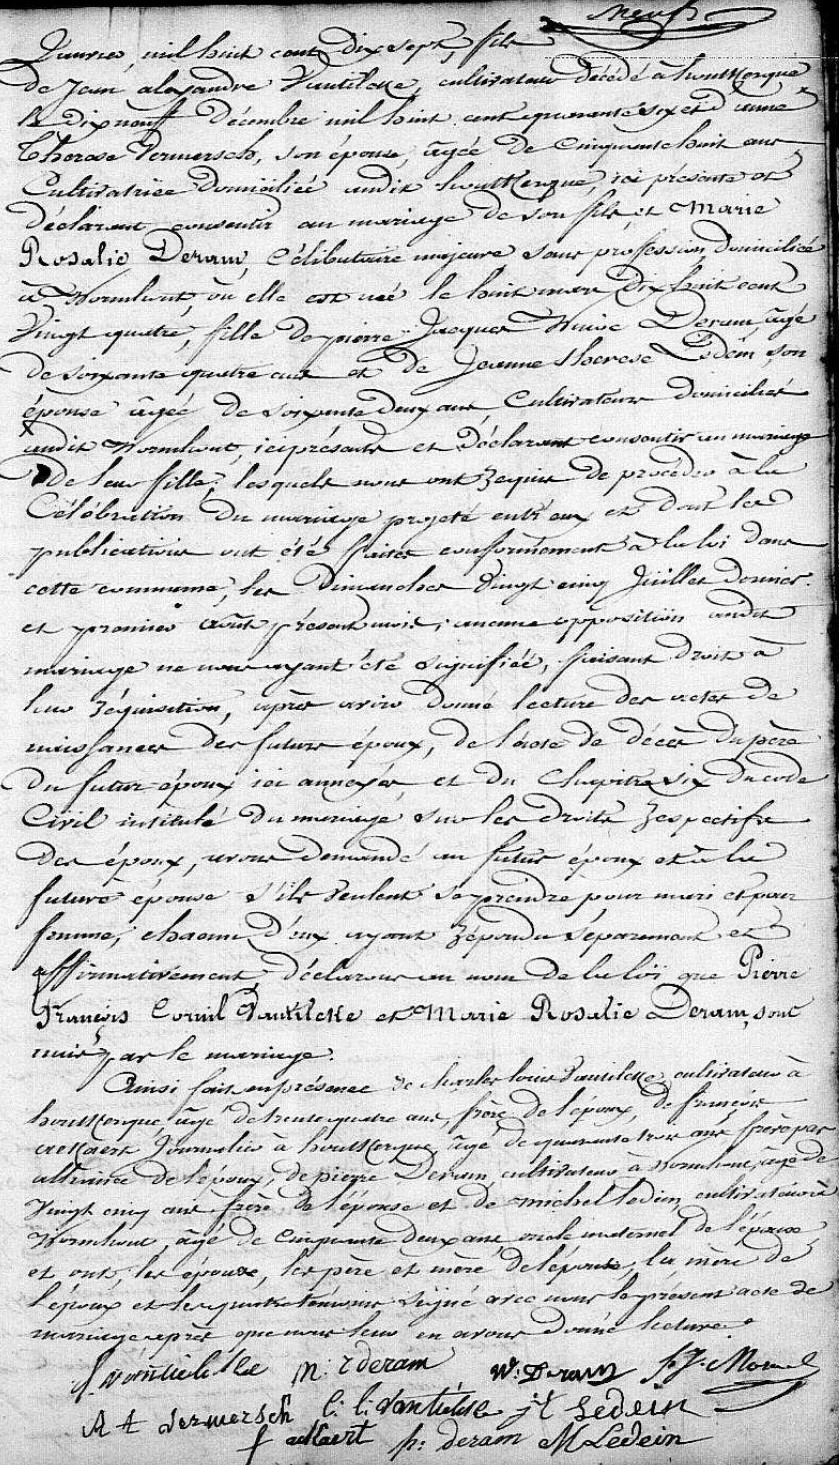 neuf
Janvier, mil huit cent dix sept, fils
de Jean alexandre Vantilcke, cultivateur décédé à houtkerque
le dix neuf Décembre mil huit cent quarante six et d'anne
Therese Vermersch, son épouse, agée de Cinquante huit ans,
Cultivatrice domiciliée audit houtkerque, ici présente et
déclarant consentir au mariage de son fils, et Marie
Rosalie Deram, Célibataire majeure sans profession, domiciliée
à Wormhout, où elle est née le huit mars dix huit cent
Vingt quatre, fille de pierre Jacques Winoc Deram, agé
de soixante quatre ans et de Jeanne therese Ledein, son
épouse agée de soixante deux ans, Cultivateurs domiciliés
audit Wormhout, ici présents et Déclarant consentir au mariage
de leur fille; lesquels nous ont requis de procéder à la
Célébration du mariage projeté entr'eux et dont les
publications ont été faites conformément à la loi dans
cette commune, les Dimanches Vingt cinq Juillet dernier
et premier août présent mois; aucune opposition audit
mariage ne nous ayant été signifiée, faisant droit à
leur réquisition, après avoir donné lecture des actes de
naissances des futurs époux, de l'acte de décès du père
du futur époux ici annexés, et du Chapitre six du code
Civil intitulé du mariage sur les droits respectifs
des époux, avons demandé au futur époux et à la
future épouse s'ils veulent se prendre pour mari et pour
femme; chacun d'eux ayant répondu séparément et
affirmativement, déclarons au nom de la loi que Pierre
François Cornil Vantilcke et Marie Rosalie Deram, sont
unis par le mariage.
Ainsi fait en présence de charles louis Vantilcke, cultivateur à
houtkerque, agé de trente quatre ans, frère de l'époux, de françois
Journalier à houtkerque, agé de quarante trois ans frère par
alliance de l'époux, de pierre Deram, cultivateur à Wormhout, agé de
Vingt cinq ans frère de l'épouse et de michel ledein, cultivateur à
Wormhout, agé de cinquante deux ans, oncle maternel de l'épouse
et ont, les époux, les père et mère de l'épouse, la mère de
l'époux et les quatre témoins signé avec nous le présent acte de
mariage après que nous leur en avons donné lecture.
m: r deram W: Deram
A t vermersch C: l: j t Ledein
f p: deram M Ledein